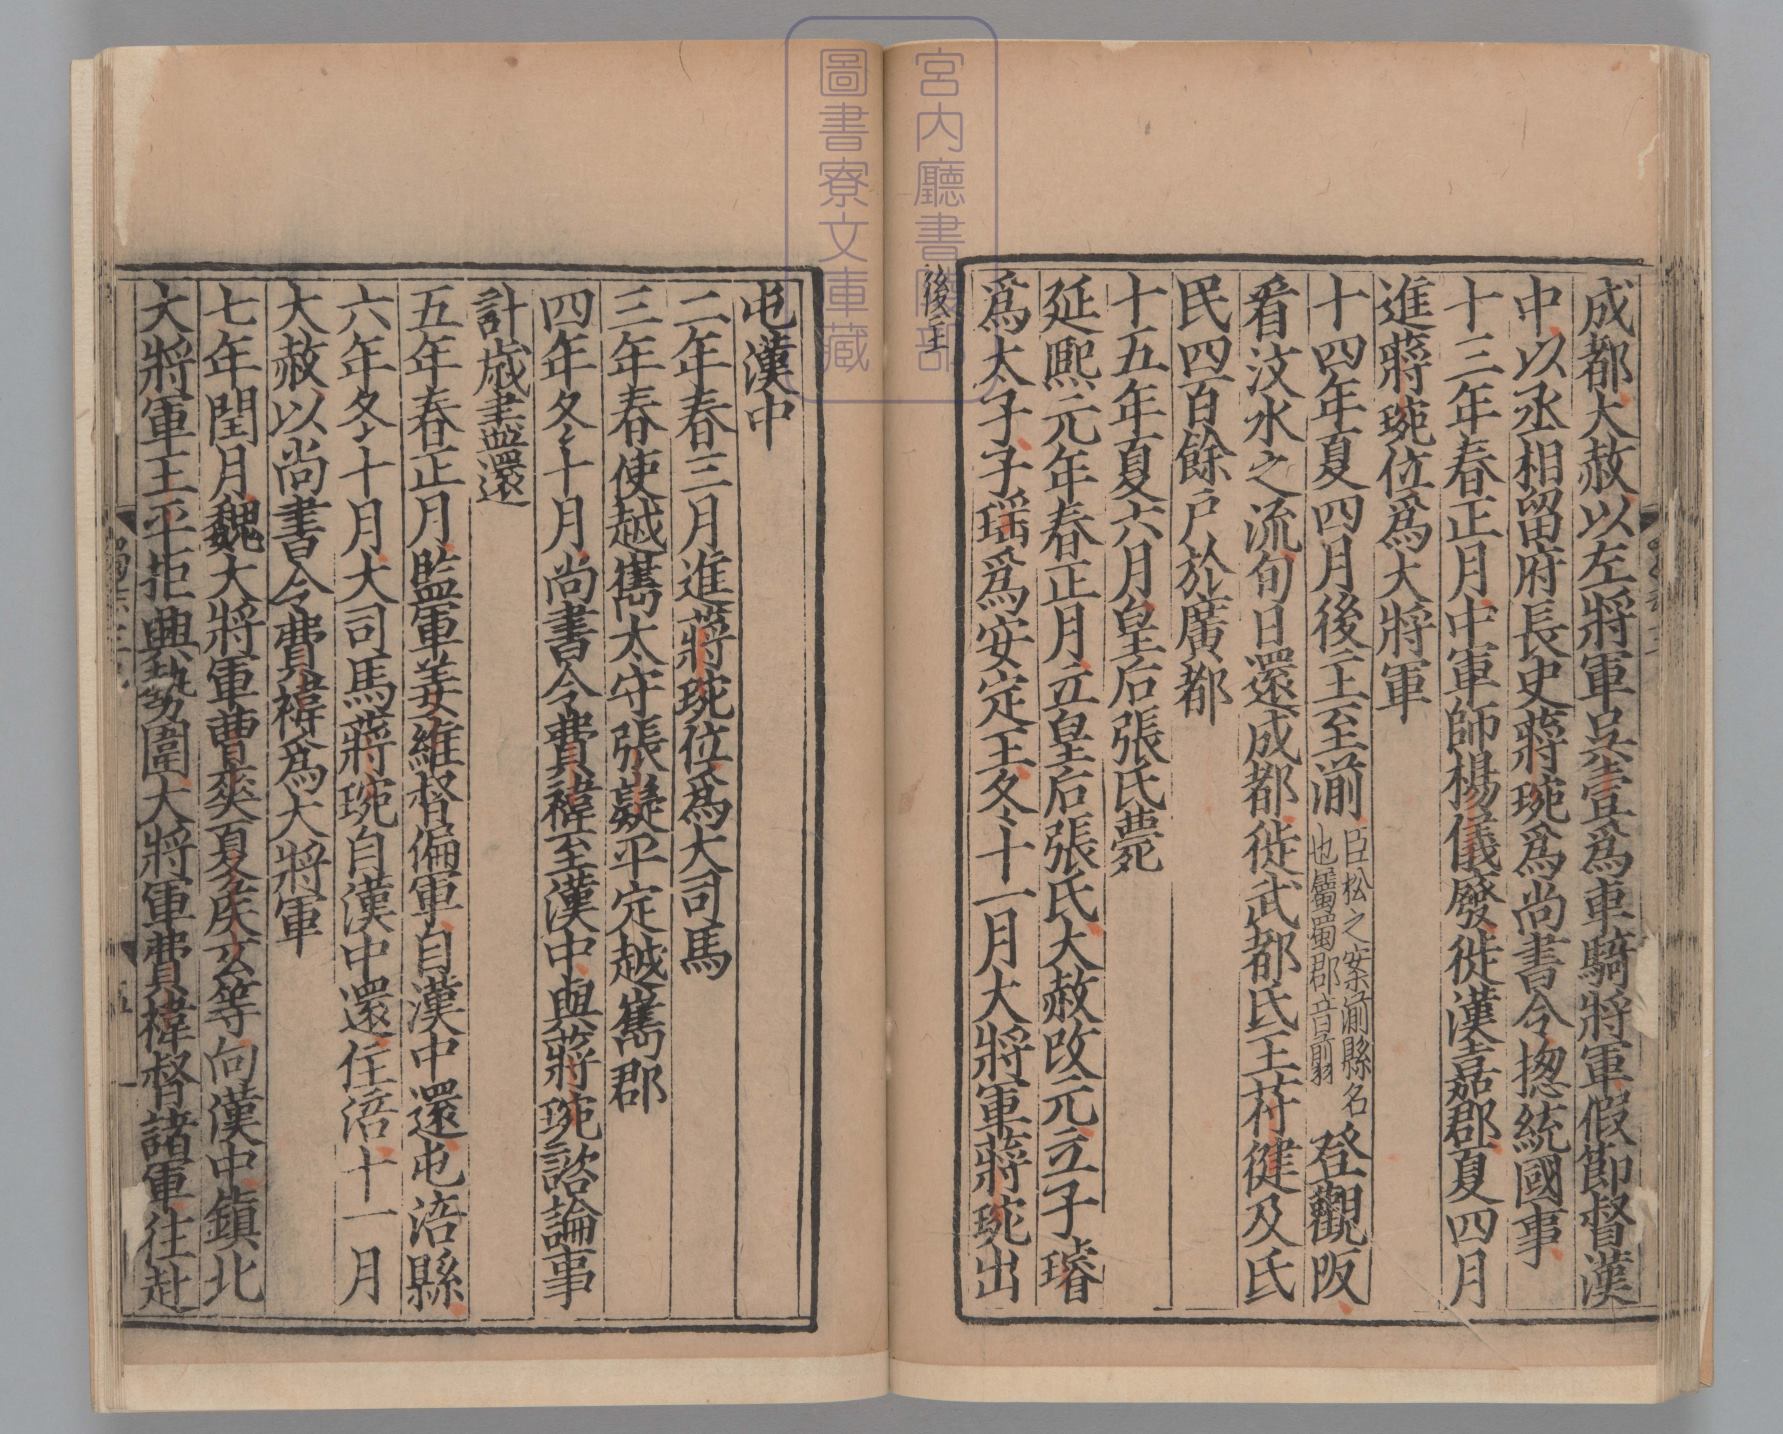 成都大赦以左將軍吳壹爲車騎將軍假節督漢
中以丞相留府長史蔣琬爲尚書令揔統國事
十三年春正月中軍師楊儀廢徙漢嘉郡夏四月
進蔣琬位爲大將軍
十四年夏四月後主至湔臣松之案湔縣名也屬蜀郡音翦登觀阪
看汶水之流旬日還成都徙武都氐王苻健及氐
民四百餘戶於廣都
十五年夏六月皇后張氏薨
延熙元年春正月立皇后張氏大赦改元立子璿
爲太子子瑤爲安定王冬十一月大將軍蔣琬出
後主
屯漢中
二年春三月進蔣琬位爲大司馬
三年春使越嶲太守張嶷平定越嶲郡
四年冬十月尚書令費禕至漢中與蔣琬諮論事
計歲盡還
五年春正月監軍姜維督偏軍自漢中還屯涪縣
六年冬十月大司馬蔣琬自漢中還住涪十一月
大赦以尚書令費禕爲大將軍
七年閏月魏大將軍曹爽夏侯玄等向漢中鎮北
大將軍王平拒興勢圍大將軍費禕督諸軍往赴
宮內廳書陵部
圖書寮文庫藏